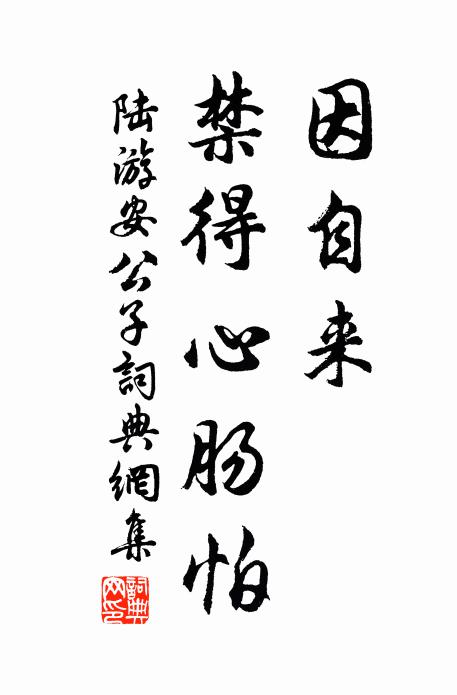 因自来
禁得心肠怕
陆游安公子詞典網集
詞典網印